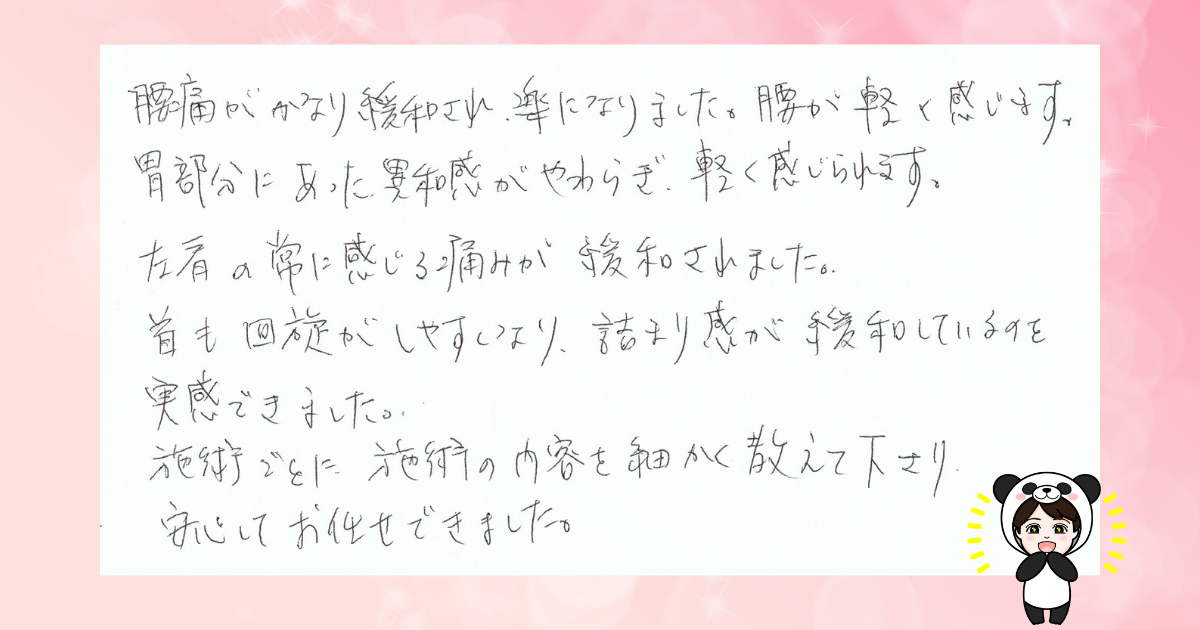 腰痛がかなり緩和され、楽になりました。腰が軽く感じます。
胃部分にあった異和感がやわらぎ、軽く感じられます。
左肩の常に感じる痛みが緩和されました。
首も回旋がしやすくなり、詰まり感が緩和しているのを
実感できました。
施術ごとに施術の内容を細かく教えて下さり、
安心してお任せできました。